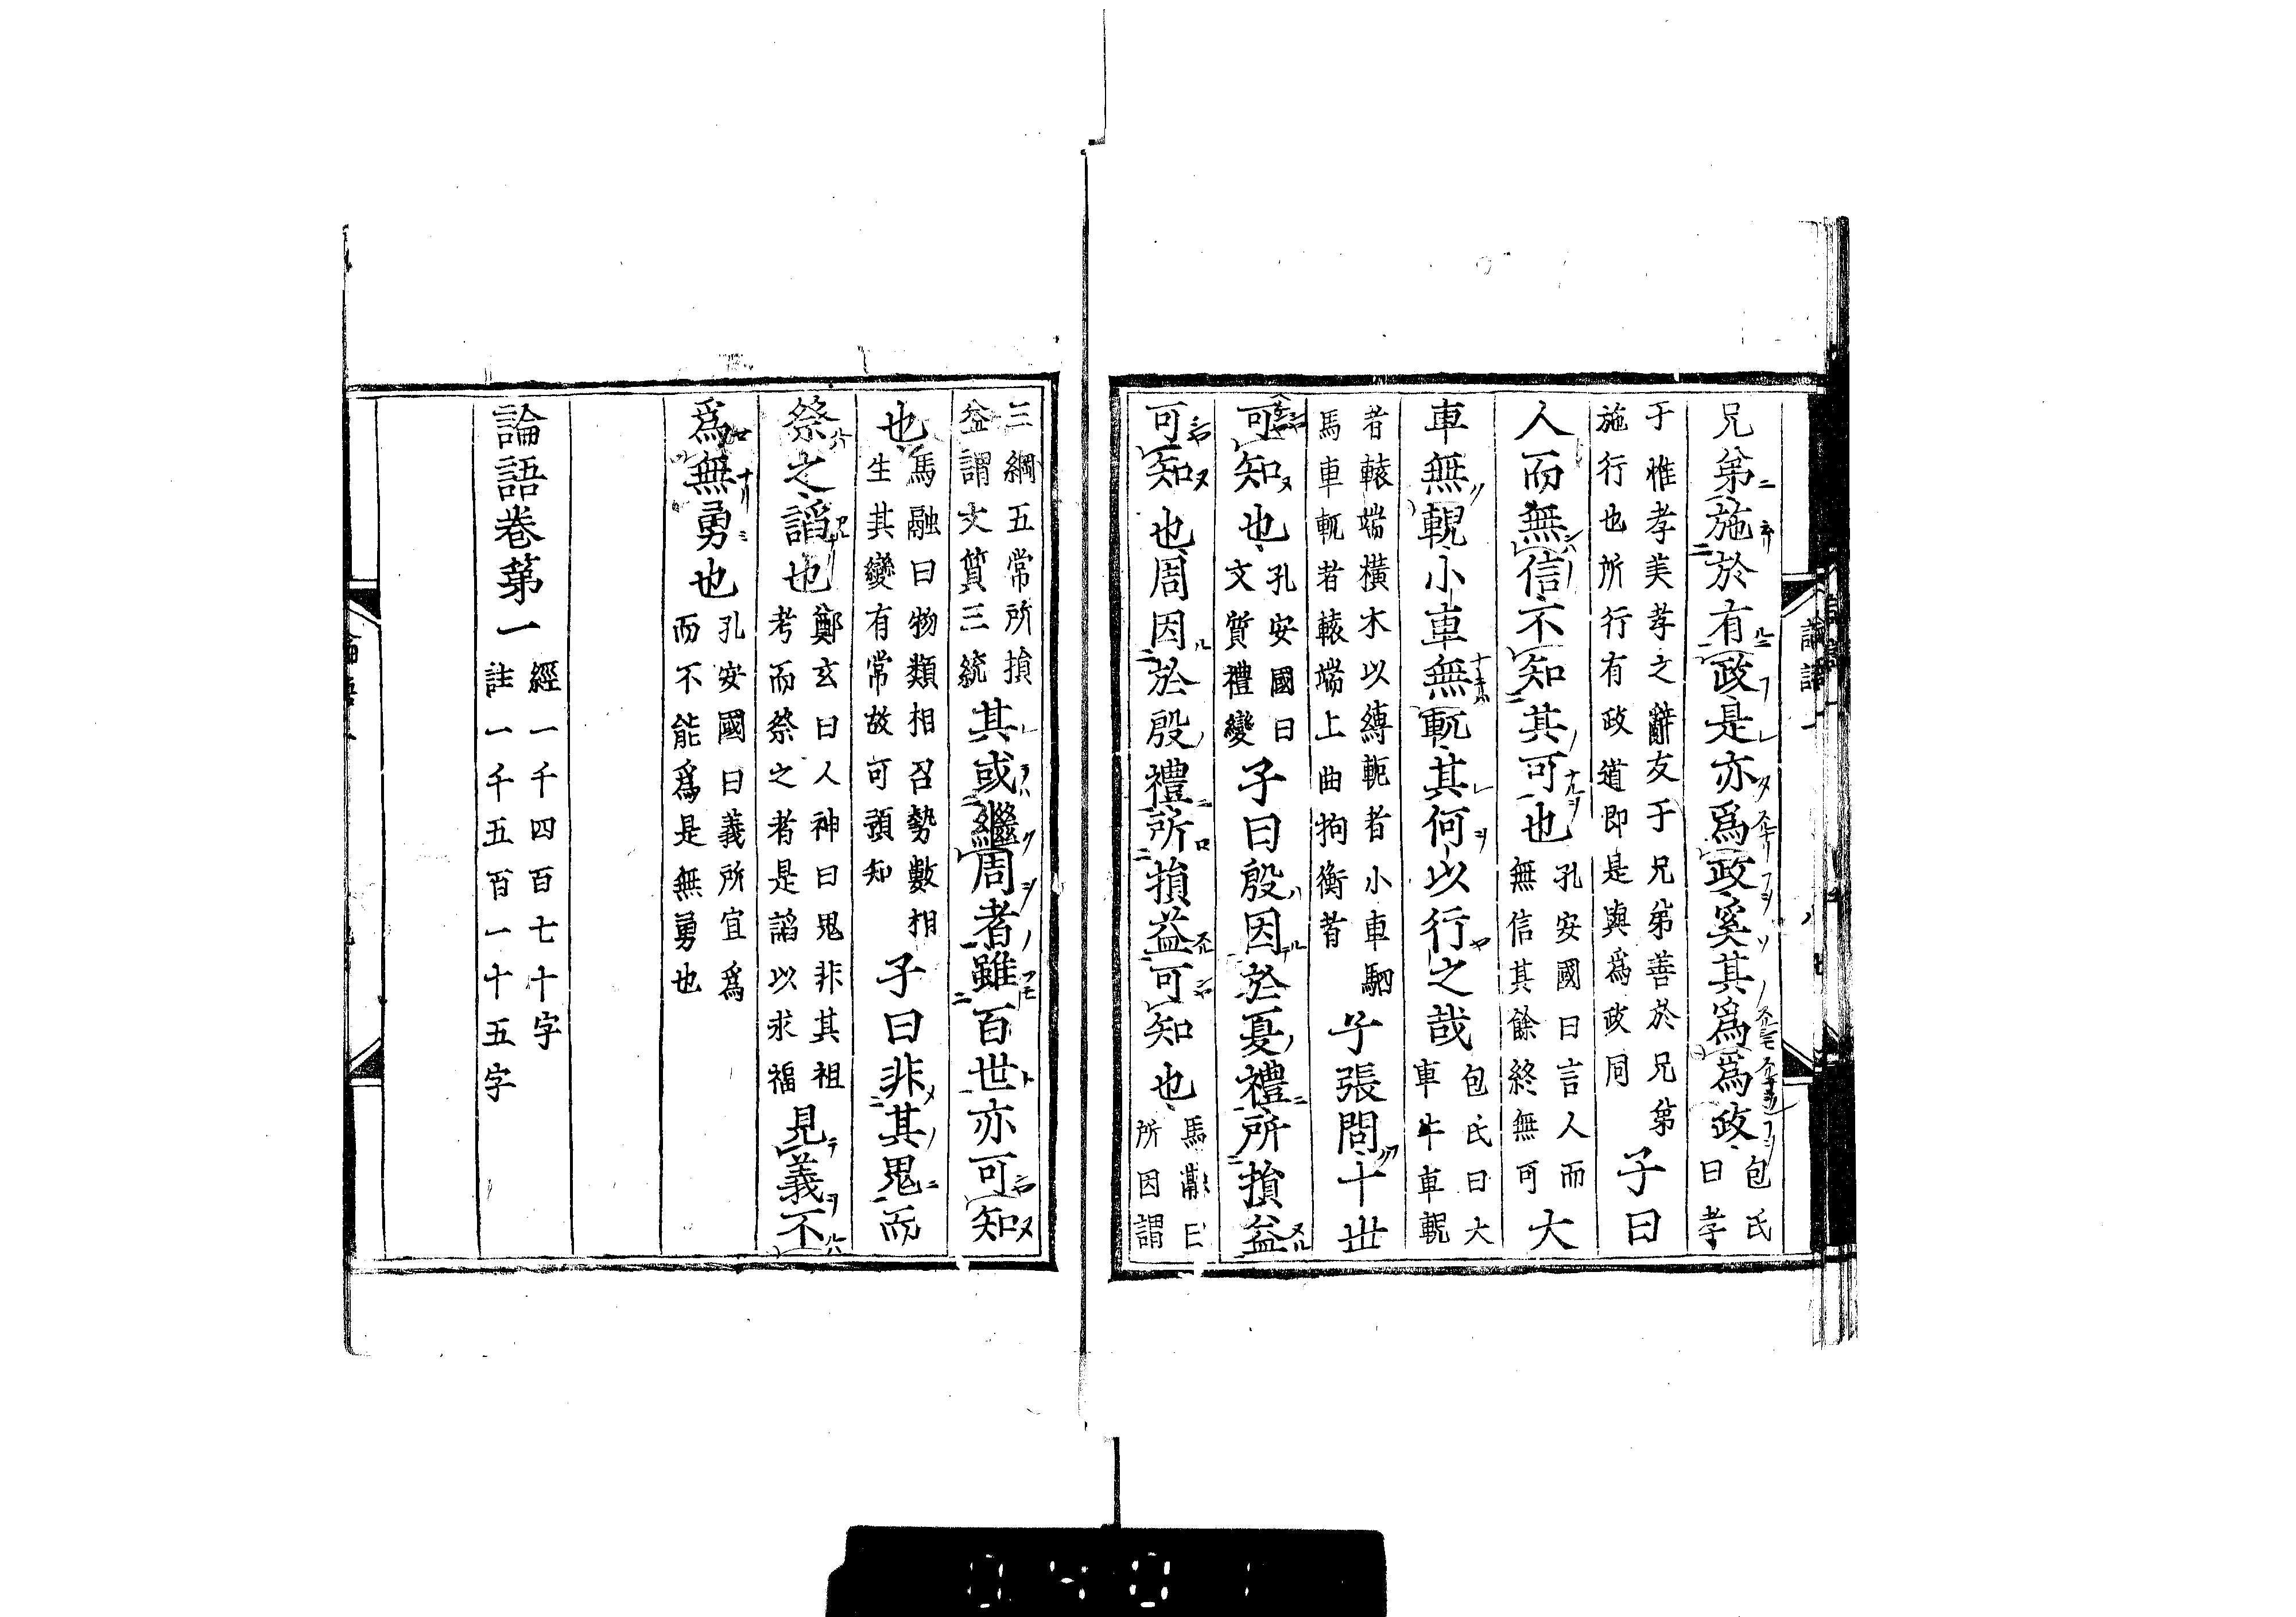 兄弟施於有政是亦爲政奚其爲爲政包氏曰孝
于惟孝美孝之辭友于兄弟善於兄弟施行也所行有政道即是與爲政同子曰
人而無信不知其可也孔安國曰言人而無信其餘終無可大
車無輗小車無軏其何以行之哉包氏曰大車牛車輗
者轅端橫木以縛軛者小車駟馬車軏者轅端上曲拘衡者子張問十世
可知也孔安國曰文質禮變子曰殷因於夏禮所損益
可知也周因於殷禮所損益可知也馬融曰所因謂
三綱五常所損益謂文質三統其或繼周者雖百世亦可知
也馬融曰物類相召勢數相生其變有常故可預知子曰非其鬼而
祭之諂也鄭玄曰人神曰鬼非其祖考而祭之者是諂以求福見義不
爲無勇也孔安國曰義所宜爲而不能爲是無勇也
論語卷第一經一千四百七十字註一千五百一十五字
論語一
八
0401